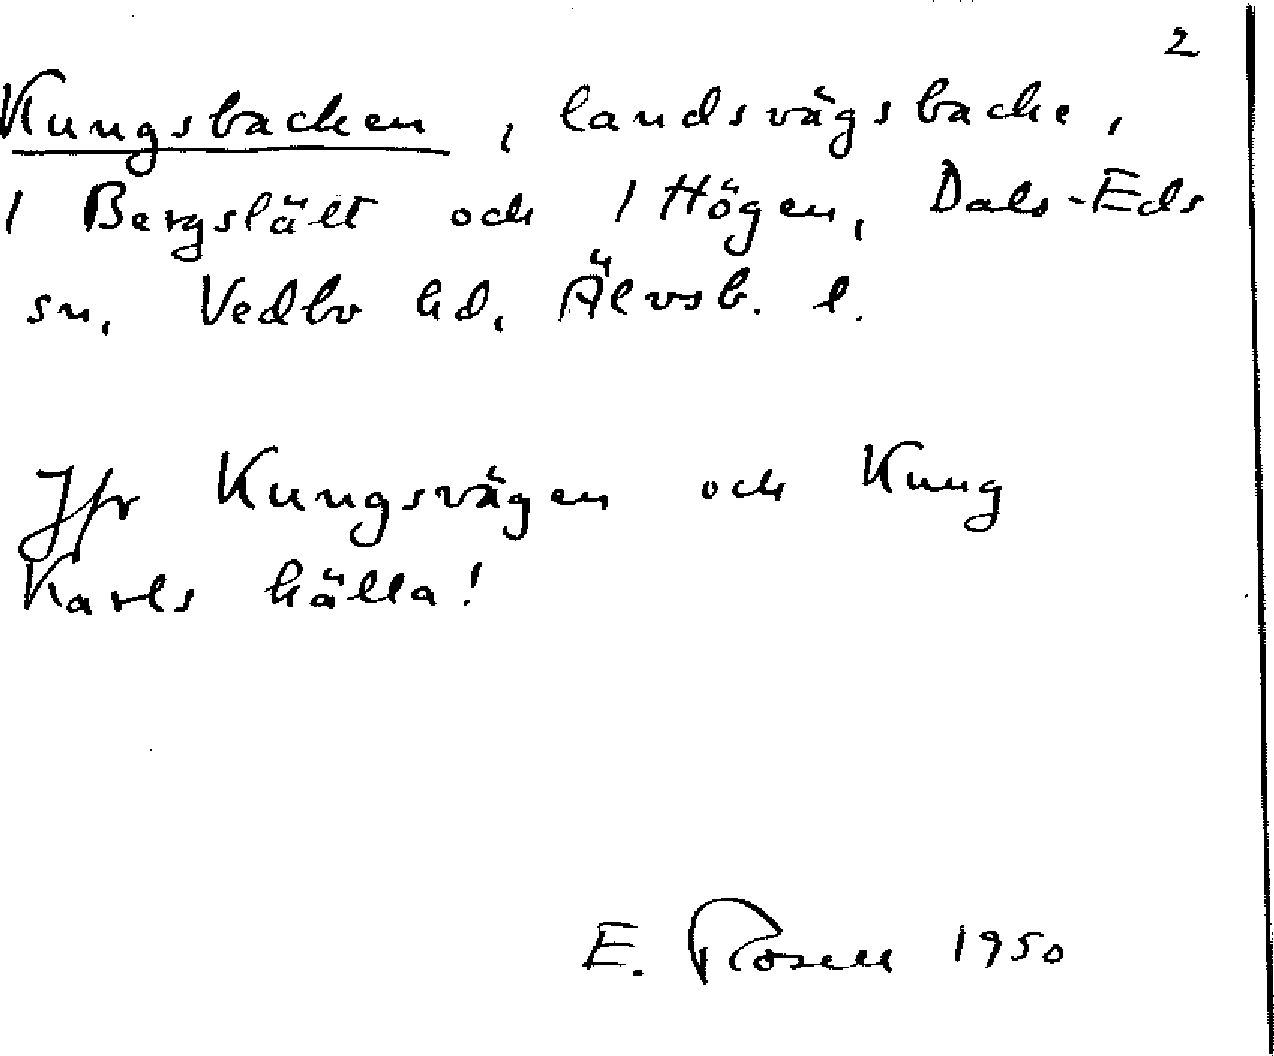 2
Kungsbacken, landsvägsbacke,
1 Bergslätt och 1 Högen, Dals-Eds
sn, Vedbo hd, Älvsb. l.
Jfr Kungsvägen och Kung
Karls källa!
E. Rosell 1950